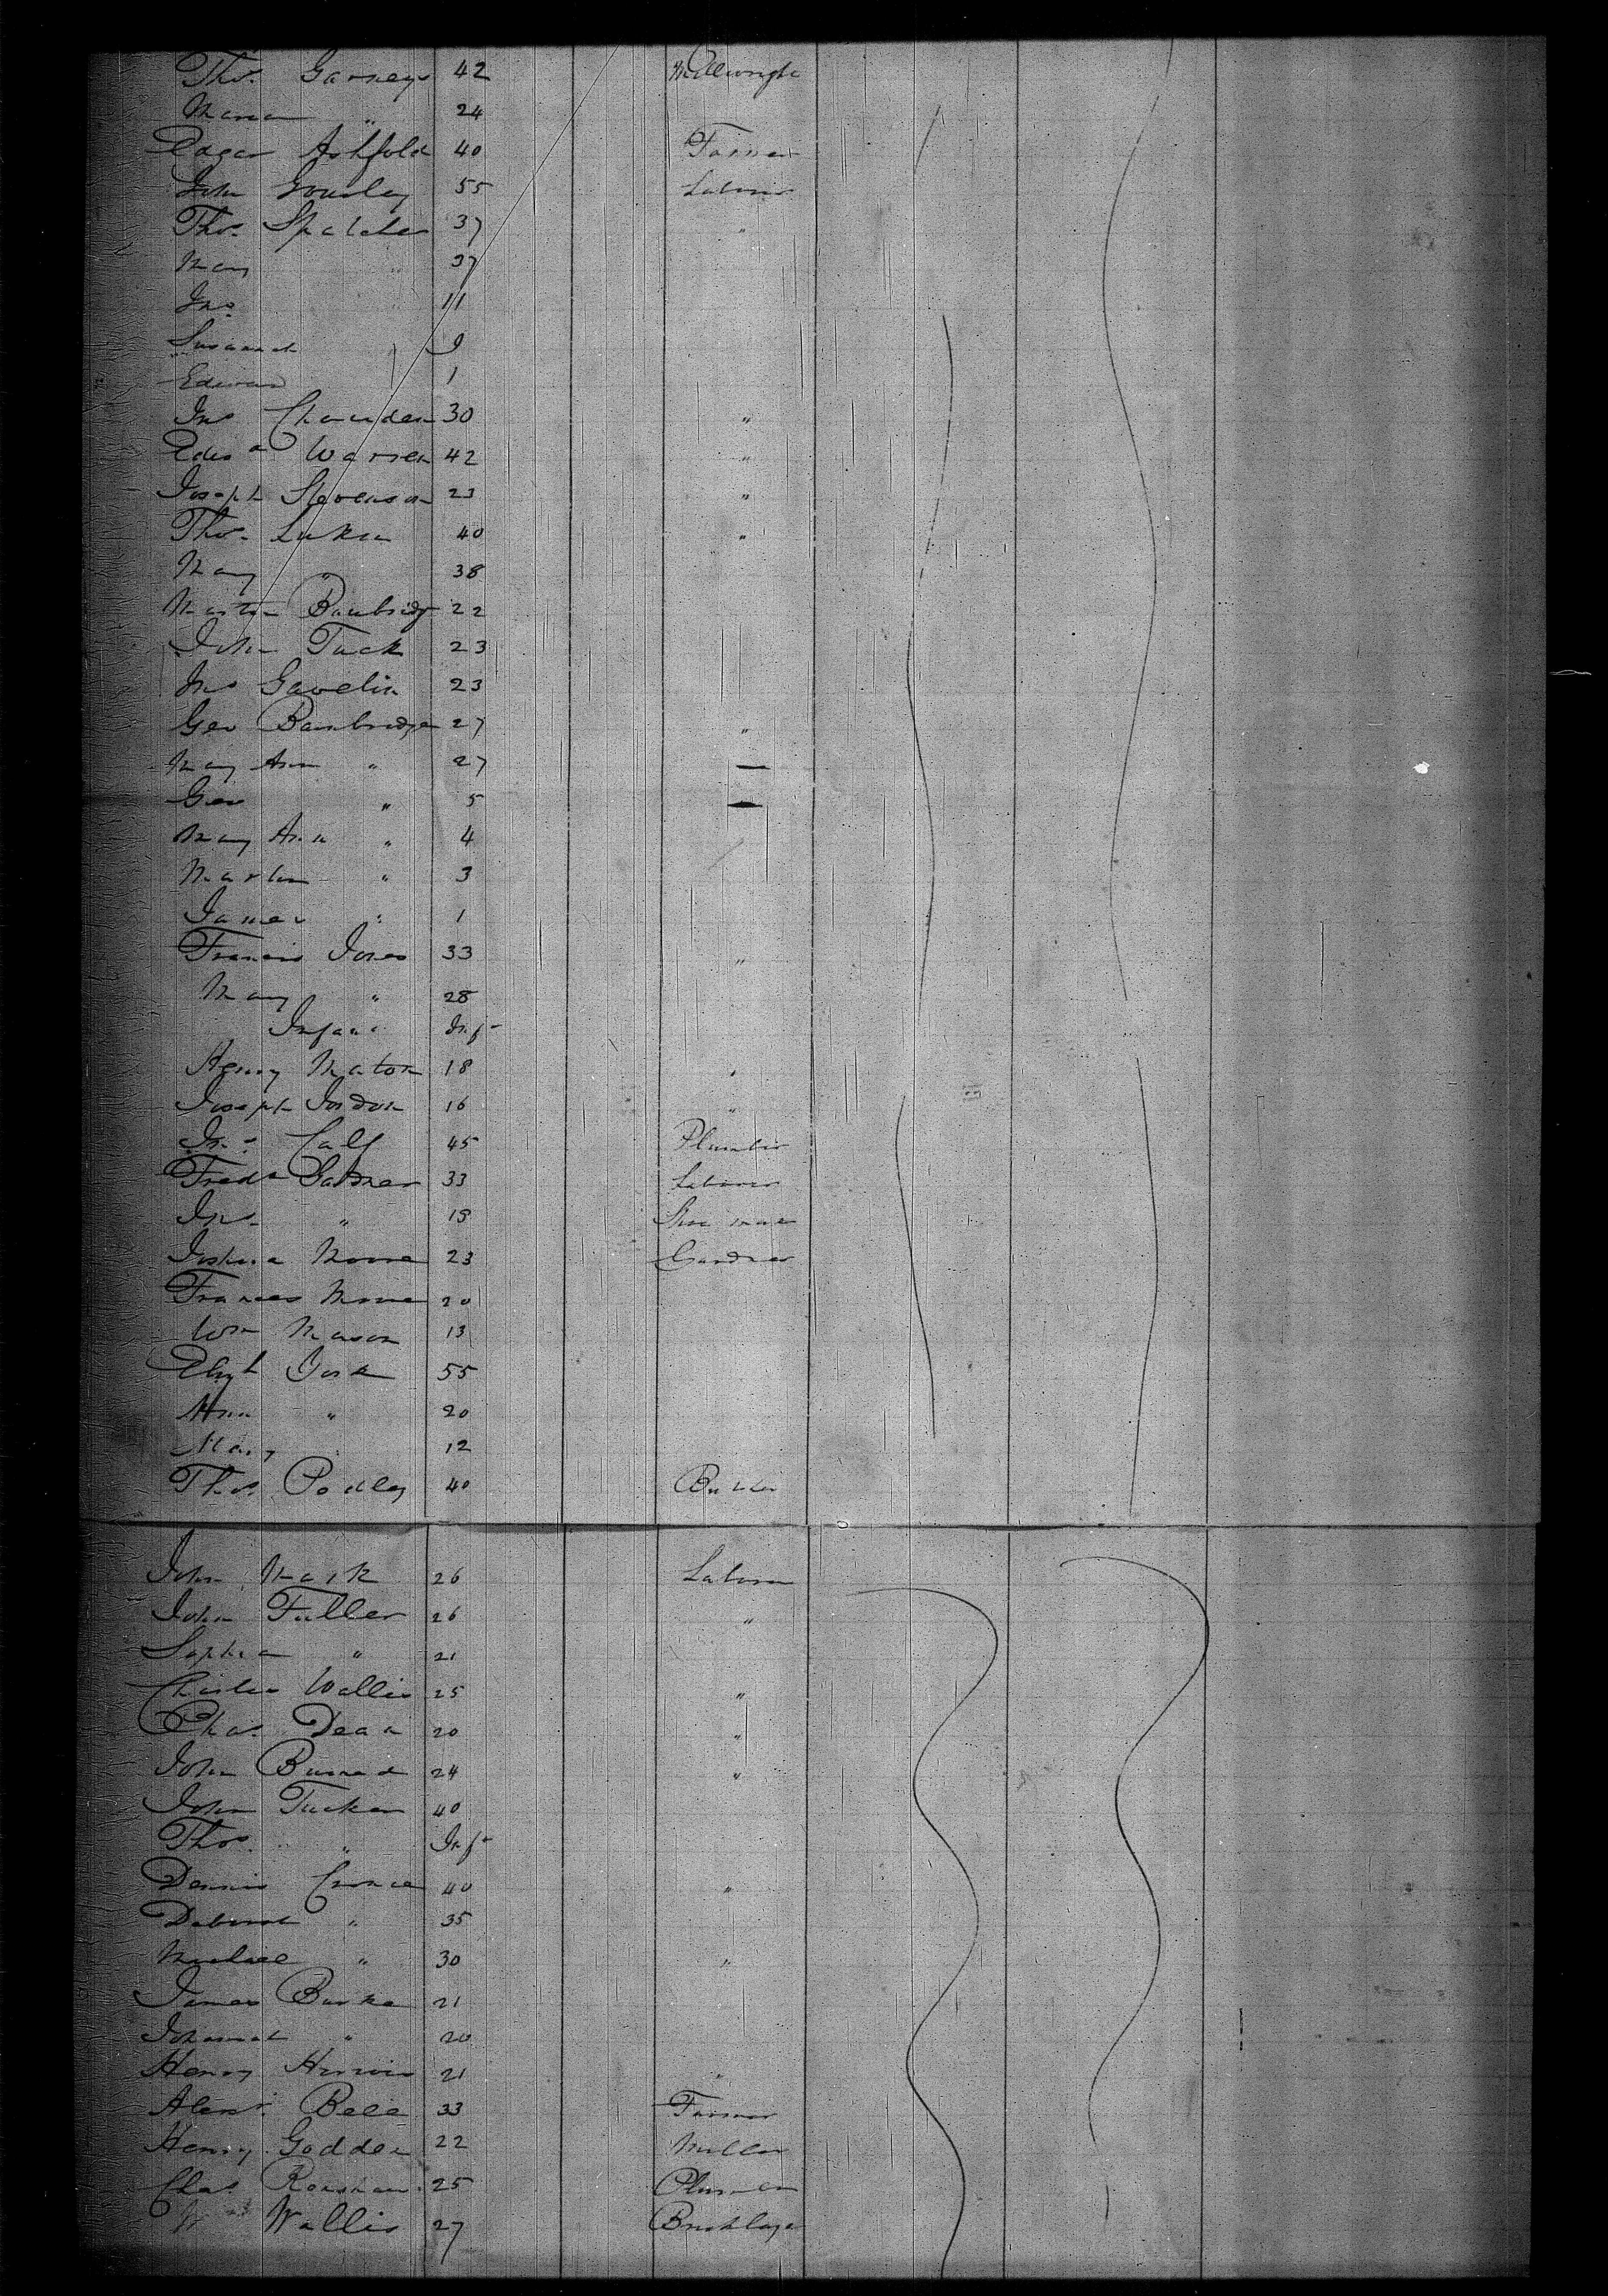 Thos. Garneys 42 Millwright
Maria " 24
Edgar Ashfold 40 Farmer
John Gourley 55 Laborer
Thos. Spalcher 37 "
Mary " 37
Jno. 11
Susannah 9
Edward 1
Jno 30 "
Edwd Warren 42 "
Joseph Stevenson 23 "
Thos. Luken 40 "
Mary " 38
Martin Bambridge 22
John Tuck 23
Jno Gavelin 23
Geo Bambridge 27 "
Mary Ann " 27 —
Geo " 5 —
Mary Ann " 4
Martin " 3
James " 1
Francis Jones 33 "
Mary " 28
Infant Inft
Henry Maton 18 "
Joseph Jordon 16 "
Jno. Calf 45 Plumber
Fredk Gardner 33 Laborer
Jno. " 19
Joshua Morre 23 Gardner
Frances Morre 20
Wm Mason 13
Elizh 55
Ann " 20
Mary 12
Thos. Podley 40
John Mack 26 Laborer
John Fuller 26 "
Sophia " 21
Charles Wallis 25 "
Chas. Dean 20 "
John 24 "
John Tucker 40
Thos. " Inft
Dennis 40 "
Deborah " 35
Michael " 30 "
James Burke 21
Johannah " 20
Henry 21 "
Alexr. Bell 33 Farmer
Henry Godden 22 Miller
Chas 25 Plumber
Wallis 27 Bricklayer